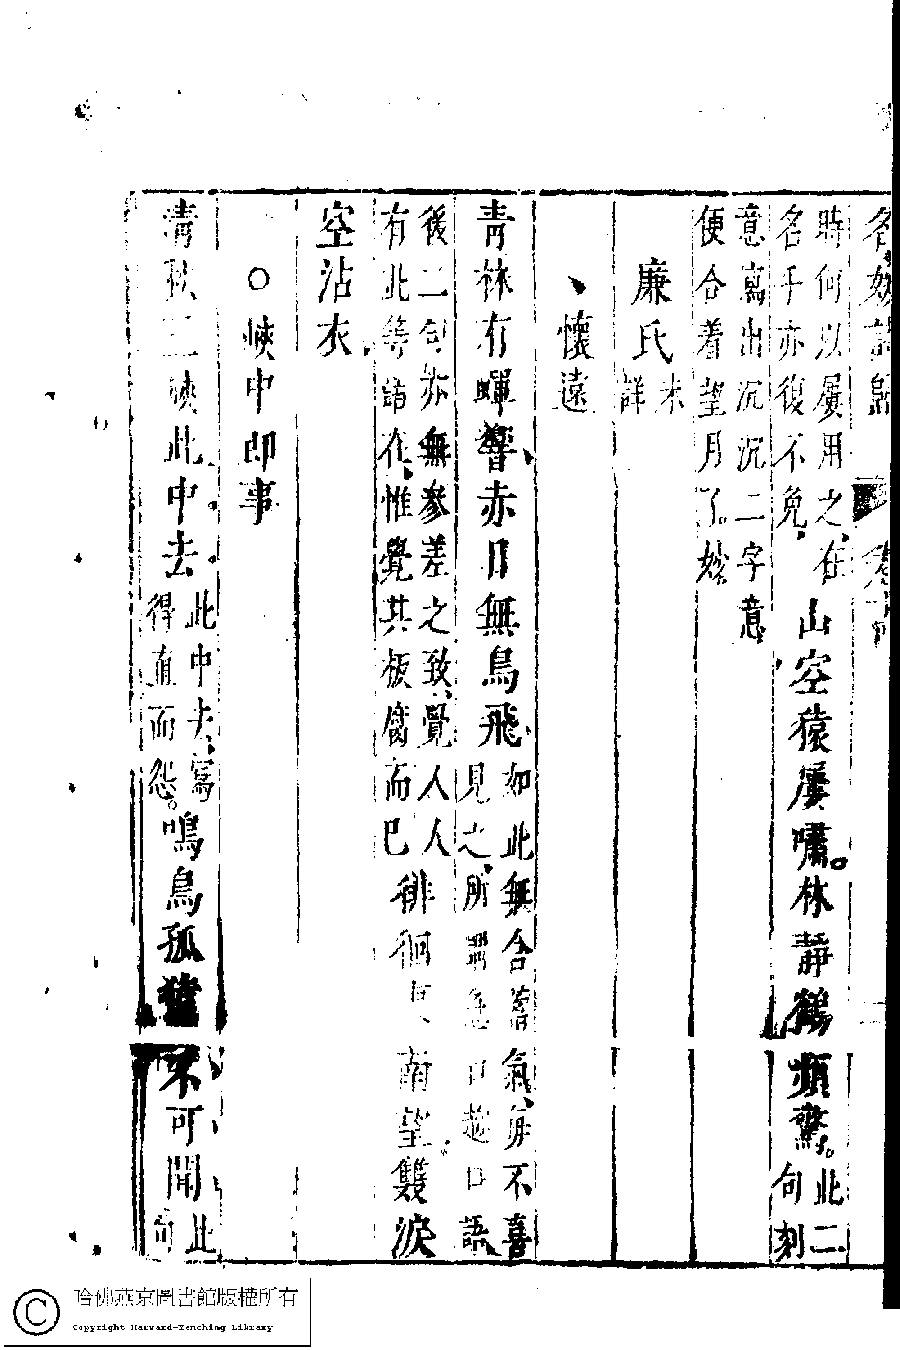 名媛詩歸
時何以屢用之在
名手亦復不免
山空猿屢嘯林靜鶴頻驚
此二
句刻
意寫出沉沉二字意
便合着望月了妙
廉氏
未
詳
懷遠
青林有暉響赤日無鳥飛
如此無含蓄氣每不喜
見之所口語
後二句亦無參差之致覺人人
有此等語在惟覺其板腐而已
徘徊南望雙淚
空沾衣
○峽中即事
清秋三峽此中去
此中去寫
得直而怨
鳴鳥孤猿不可聞
此
句
哈佛燕京圖書館版權所有
Copyright Harvard-Yenching Library